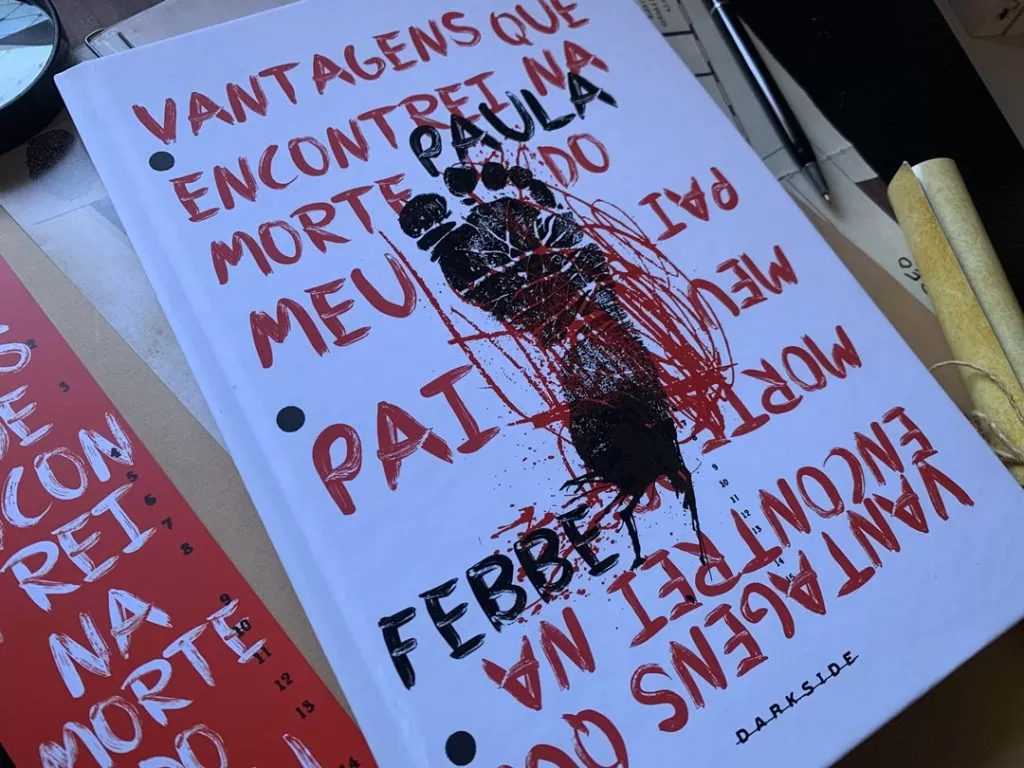 VANTAGENS QUE
ENCONTREI NA
PAULA
MORTE DO
MEU
PAI
FEBBE
VANTAGENS QU
ENCONTREI NA
MORTE
MEU
PAI
9
10
11
12
13
14
15
DARKSIDE
S
DE
CON
REI
NA
MORTE
DO
3
4
5
6
7
8
9
10
11
12
13
14